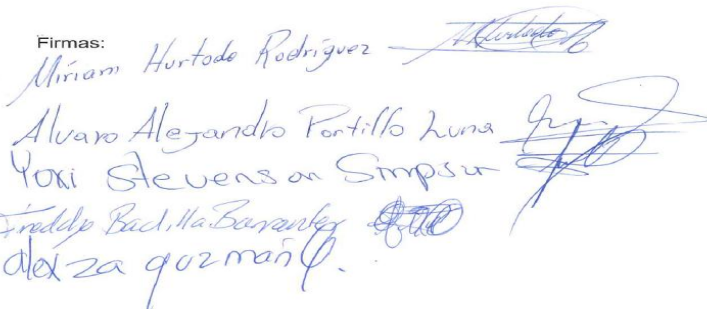 Firmas:
Miriam Hurtado Rodríguez
Alvaro Alejandro Portillo Luna
Yoxi Stevenson Simpson
Freddy Badilla Barrantes
alexza guzmán